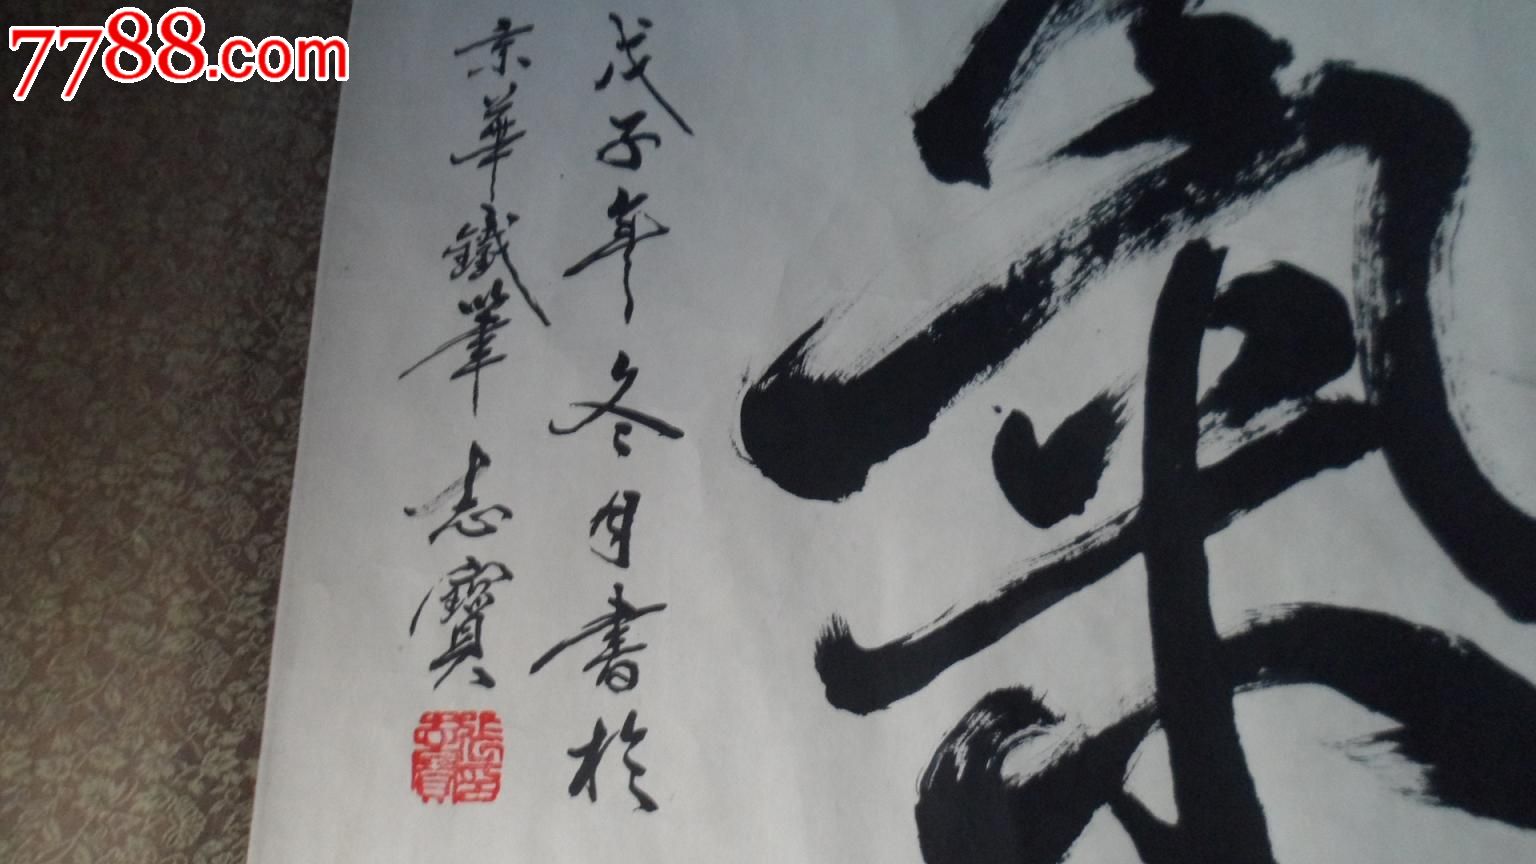 7788.com
氣
戊子年冬月書於
京華鐵筆志寶
張志寶印